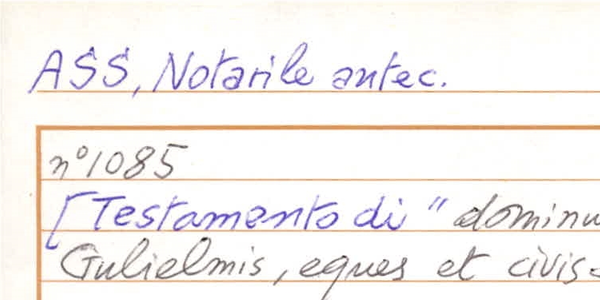 ASS, Notarile antec.
n° 1085
[Testamento di "dominu
Gulielmis, eques et civis